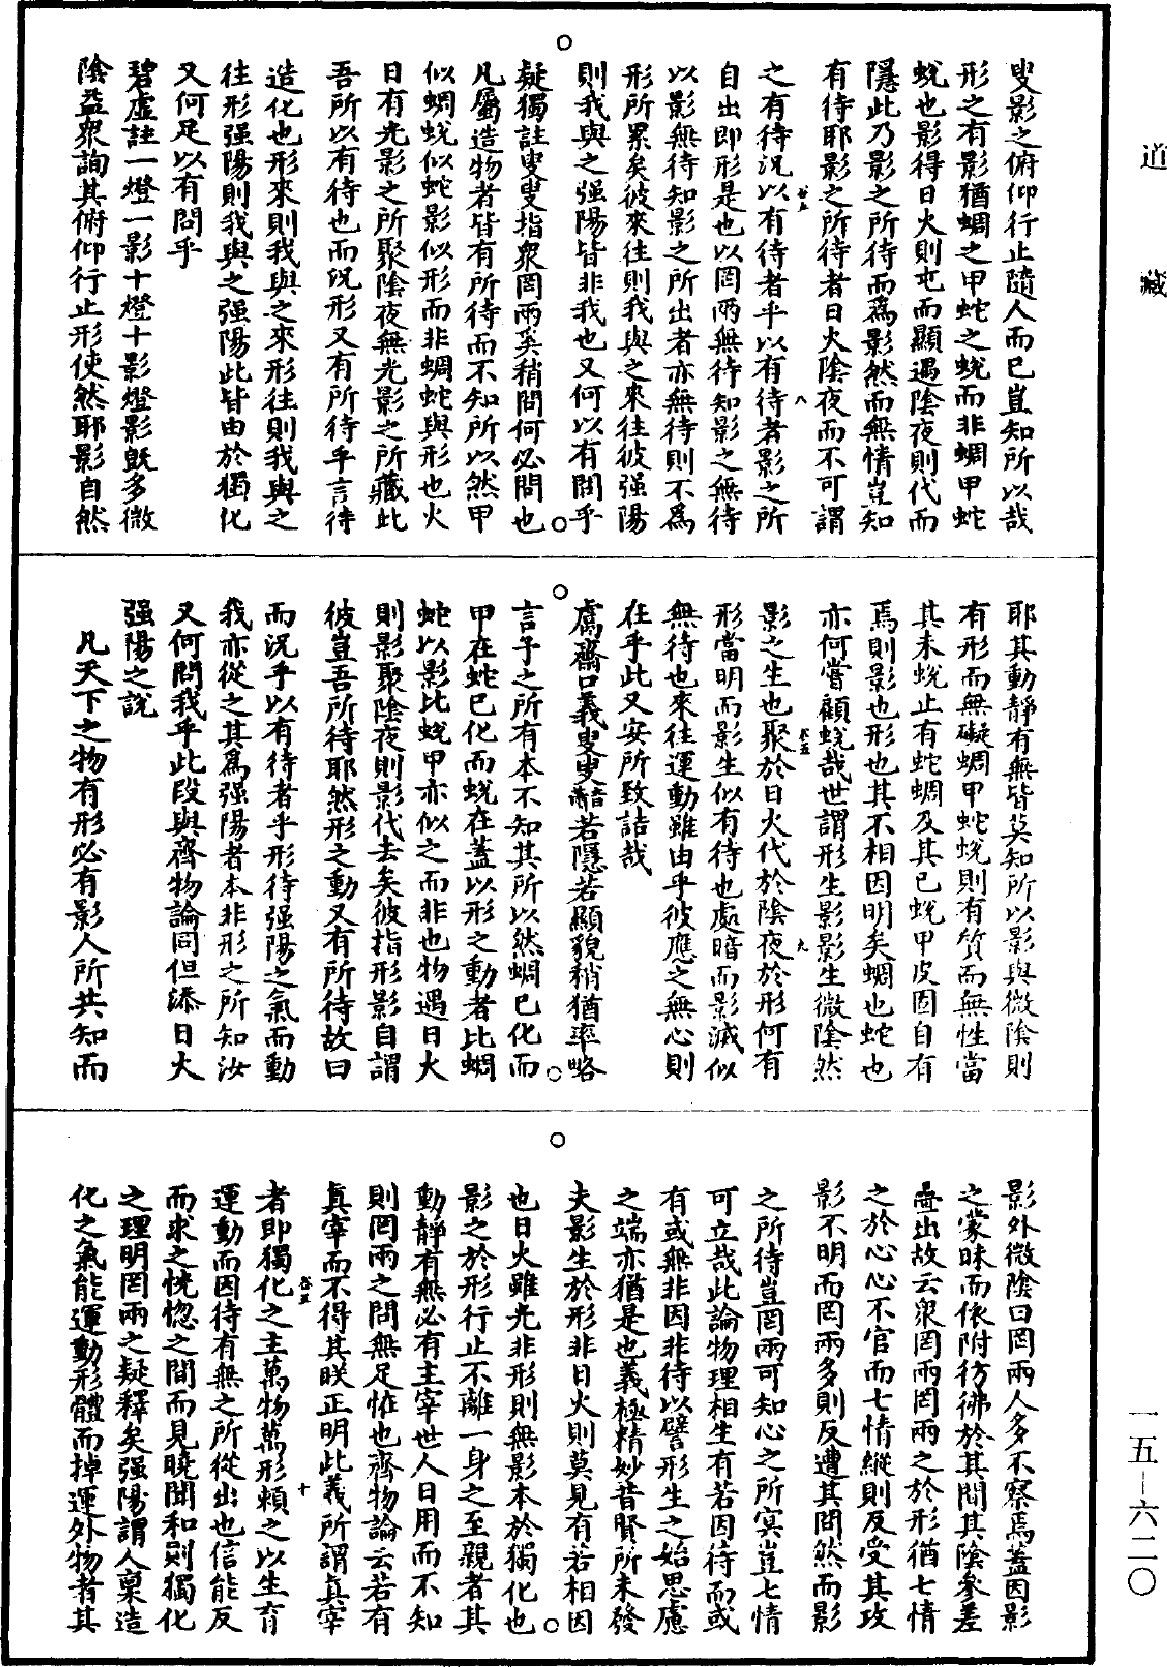 道藏
叟影之俯仰行止隨人而已豈知所以哉
形之有影猶蜩之甲蛇之蛻而非蜩甲蛇
蛻也影得日火則屯而顯遇陰夜則代而
隱此乃影之所待而爲影然而無情豈知
有待耶影之所待者日火陰夜而不可謂
之有待況以有待者乎以有待者影之所
自出即形是也以罔兩無待知影之無待
以影無待知影之所出者亦無待則不爲
形所累矣彼來往則我與之來往彼强陽
則我與之强陽皆非我也又何以有問乎
疑獨註叟叟指衆罔兩奚稍問何必問也
凡屬造物者皆有所待而不知所以然甲
似蜩蛻似蛇影似形而非蜩蛇與形也火
日有光影之所聚陰夜無光影之所藏此
吾所以有待也而況形又有所待乎言待
造化也形來則我與之來形往則我與之
往形强陽則我與之强陽此皆由於獨化
又何足以有問乎
碧虛註一燈一影十燈十影燈影旣多微
陰益衆詢其俯仰行止形使然耶影自然
耶其動靜有無皆莫知所以影與微陰則
有形而無礙蜩甲蛇蛻則有質而無性當
其未蛻止有蛇蜩及其已蛻甲皮固自有
焉則影也形也其不相因明矣蜩也蛇也
亦何嘗顧蛻哉世謂形生影影生微陰然
影之生也聚於日火代於陰夜於形何有
形當明而影生似有待也處暗而影滅似
無待也來往運動雖由乎彼應之無心則
在乎此又安所致詰哉
鬳齋口義叟叟䤃若隱若顯貌稍猶率略
言予之所有本不知其所以然蜩已化而
甲在蛇已化而蛻在蓋以形之動者比蜩
蛇以影比蛻甲亦似之而非也物遇日火
則影聚陰夜則影代去矣彼指形影自謂
彼豈吾所待耶然形之動又有所待故曰
而況乎以有待者乎形待强陽之氣而動
我亦從之其爲强陽者本非形之所知汝
又何問我乎此段與齊物論同但添日火
强陽之說
凡天下之物有形必有影人所共知而
影外微陰曰罔兩人多不察焉蓋因影
之蒙昧而依附彷彿於其間其陰參差
疊出故云衆罔兩罔兩之於形猶七情
之於心心不官而七情縱則反受其攻
影不明而罔兩多則反遭其問然而影
之所待豈罔兩可知心之所冥豈七情
可立哉此論物理相生有若因待而或
有或無非因非待以譬形生之始思慮
之端亦猶是也義極精妙昔賢所未發
夫影生於形非日火則莫見有若相因
也日火雖光非形則無影本於獨化也
影之於形行止不離一身之至親者其
動靜有無必有主宰世人日用而不知
則罔兩之問無足怪也齊物論云若有
眞宰而不得其眹正明此義所謂眞宰
者即獨化之主萬物萬形賴之以生育
運動而因待有無之所從出也信能反
而求之恍惚之間而見曉聞和則獨化
之理明罔兩之疑釋矣强陽謂人稟造
化之氣能運動形體而掉運外物者其
一五—六二〇